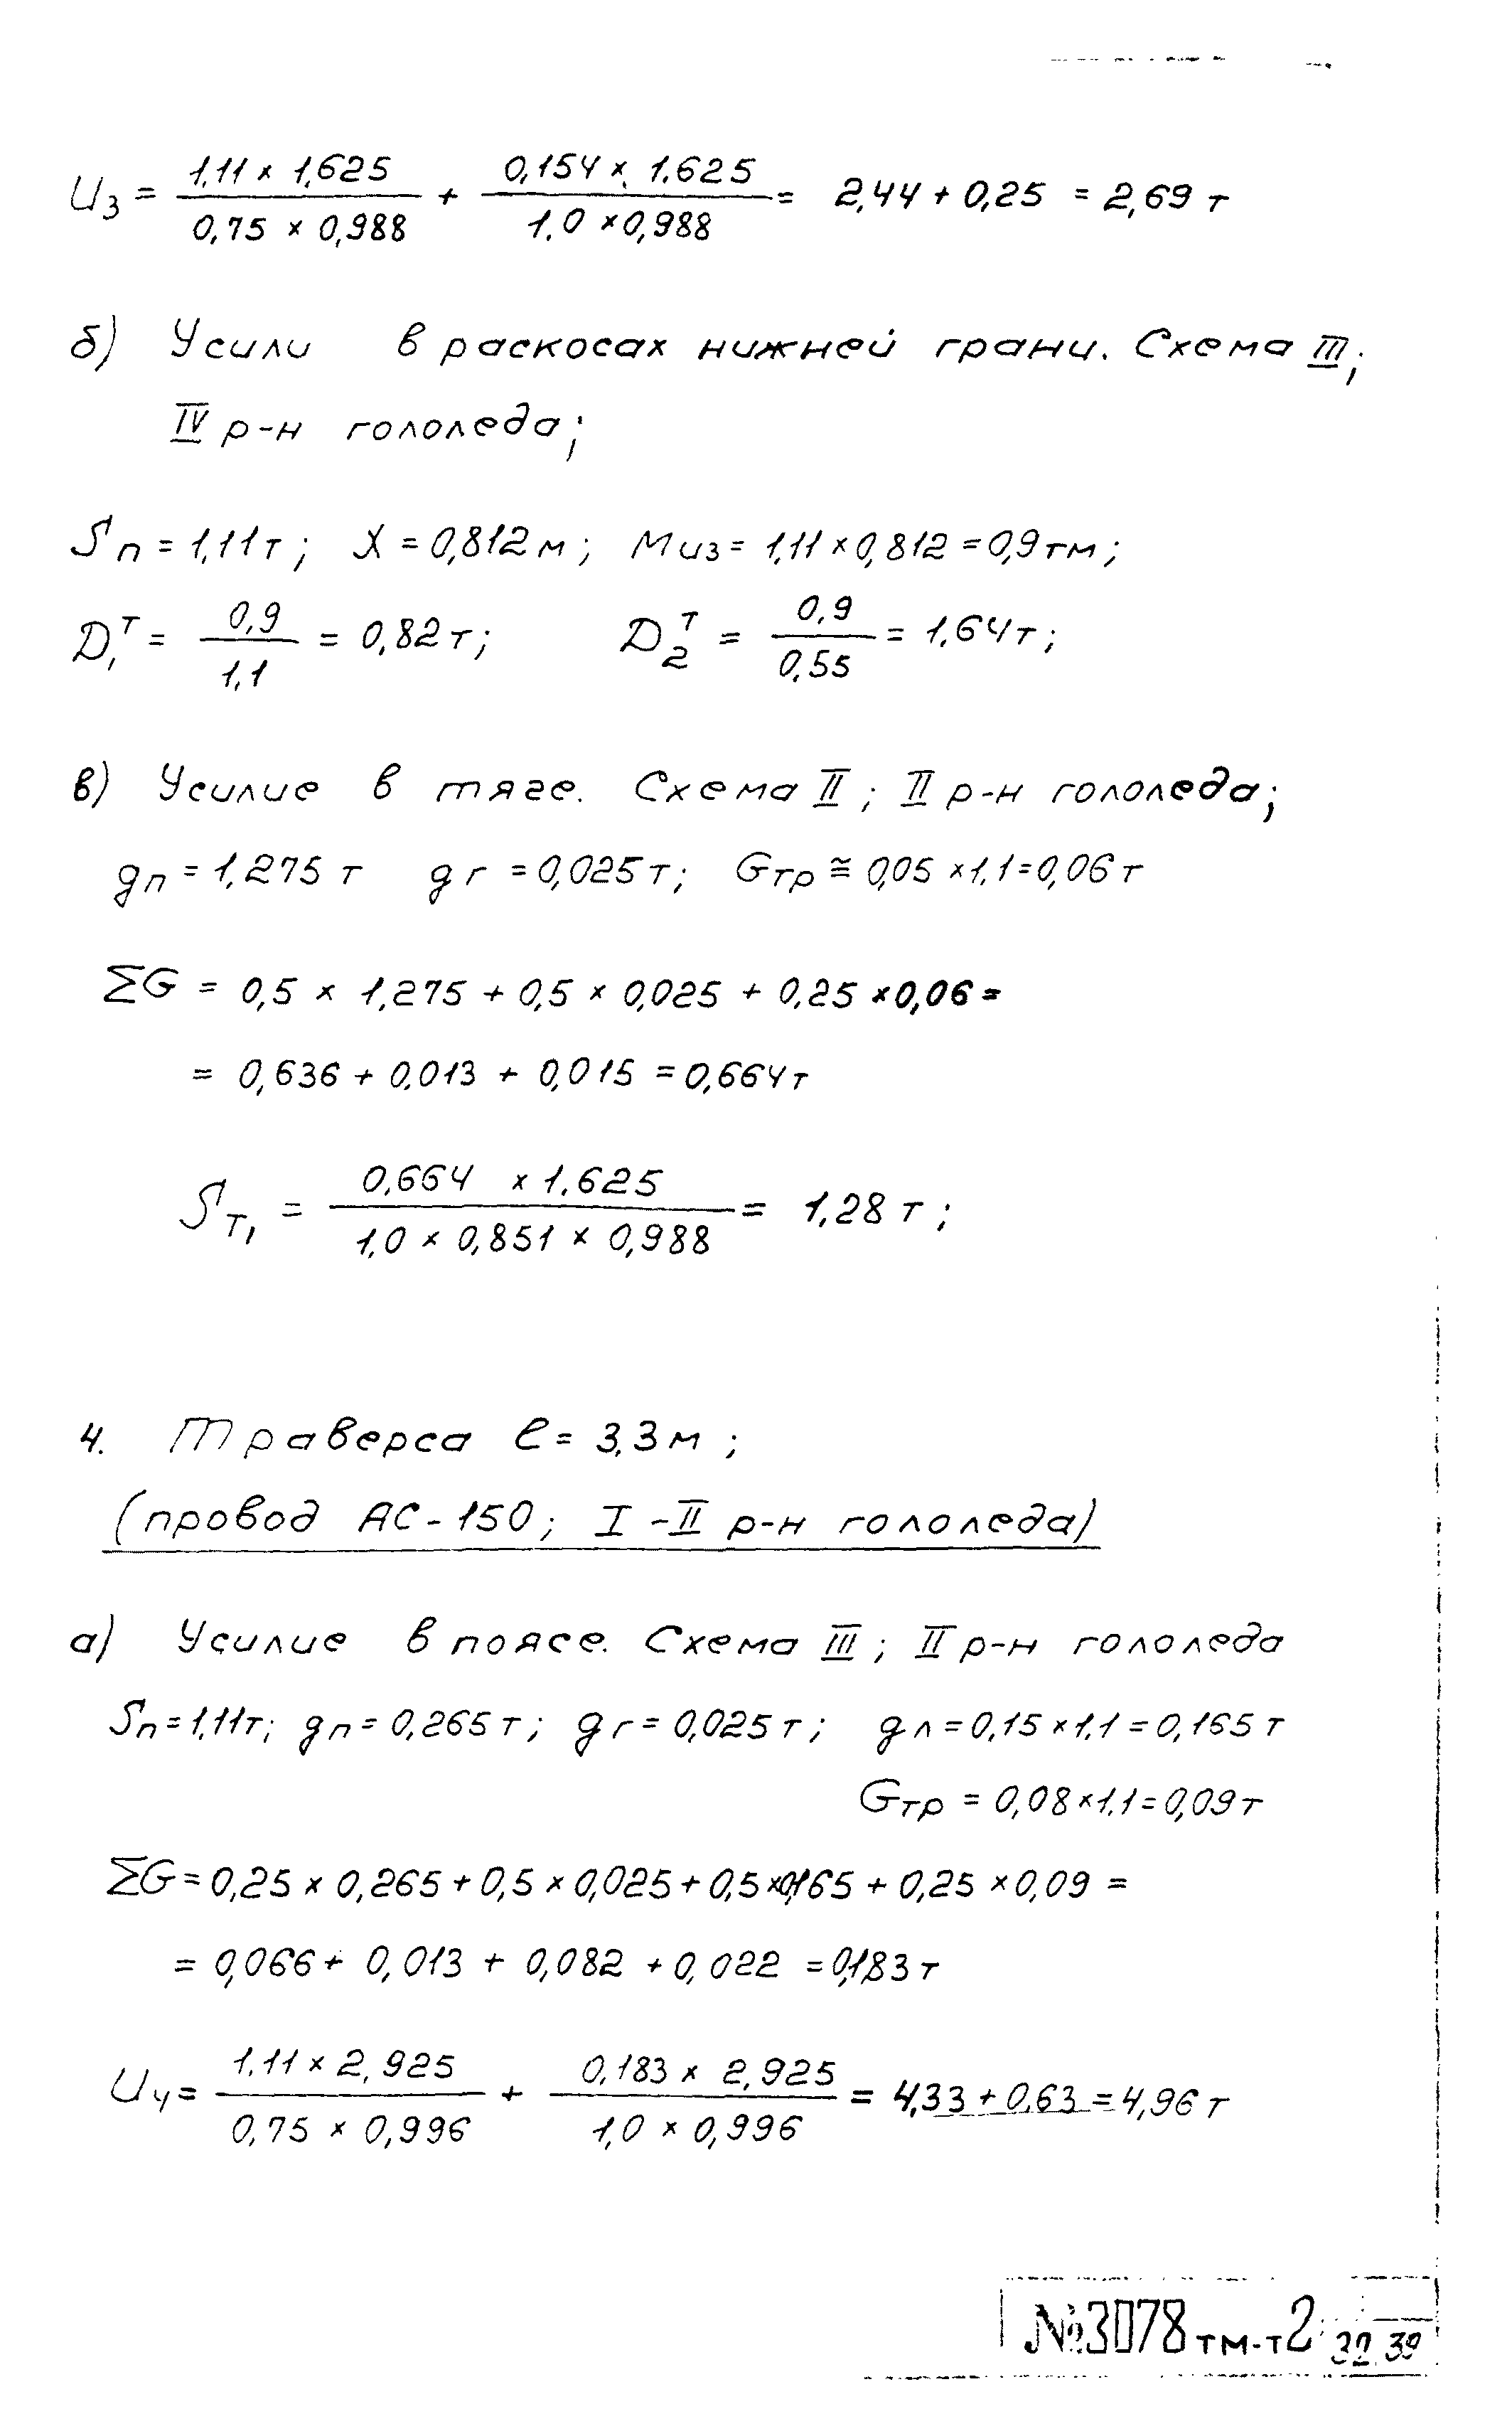 U₃ = (1,11 × 1,625)/(0,75 × 0,988) + (0,154 × 1,625)/(1,0 × 0,988) = 2,44 + 0,25 = 2,69 т
б) Усили в раскосах нижней грани. Схема III;
IV р-н гололеда;
Sп = 1,11 т; X = 0,812 м; Mиз = 1,11 × 0,812 = 0,9 тм;
D₁ᵀ = 0,9/1,1 = 0,82 т; D₂ᵀ = 0,9/0,55 = 1,64 т;
в) Усилие в тяге. Схема II; II р-н гололеда;
gп = 1,275 т gг = 0,025 т; Gтр ≅ 0,05 × 1,1 = 0,06 т
ΣG = 0,5 × 1,275 + 0,5 × 0,025 + 0,25 × 0,06 =
= 0,636 + 0,013 + 0,015 = 0,664 т
Sт₁ = (0,664 × 1,625)/(1,0 × 0,851 × 0,988) = 1,28 т;
4. Траверса ℓ = 3,3 м;
(провод АС-150; I-II р-н гололеда)
а) Усилие в поясе. Схема III; II р-н гололеда
Sп = 1,11 т; gп = 0,265 т; gг = 0,025 т; gл = 0,15 × 1,1 = 0,165 т
Gтр = 0,08 × 1,1 = 0,09 т
ΣG = 0,25 × 0,265 + 0,5 × 0,025 + 0,5 × 0,165 + 0,25 × 0,09 =
= 0,066 + 0,013 + 0,082 + 0,022 = 0,183 т
U₄ = (1,11 × 2,925)/(0,75 × 0,996) + (0,183 × 2,925)/(1,0 × 0,996) = 4,33 + 0,63 = 4,96 т
№3078тм-т2 32 39